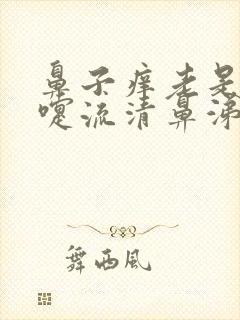 鼻子痒老是
嚏流清鼻涕
舞西风